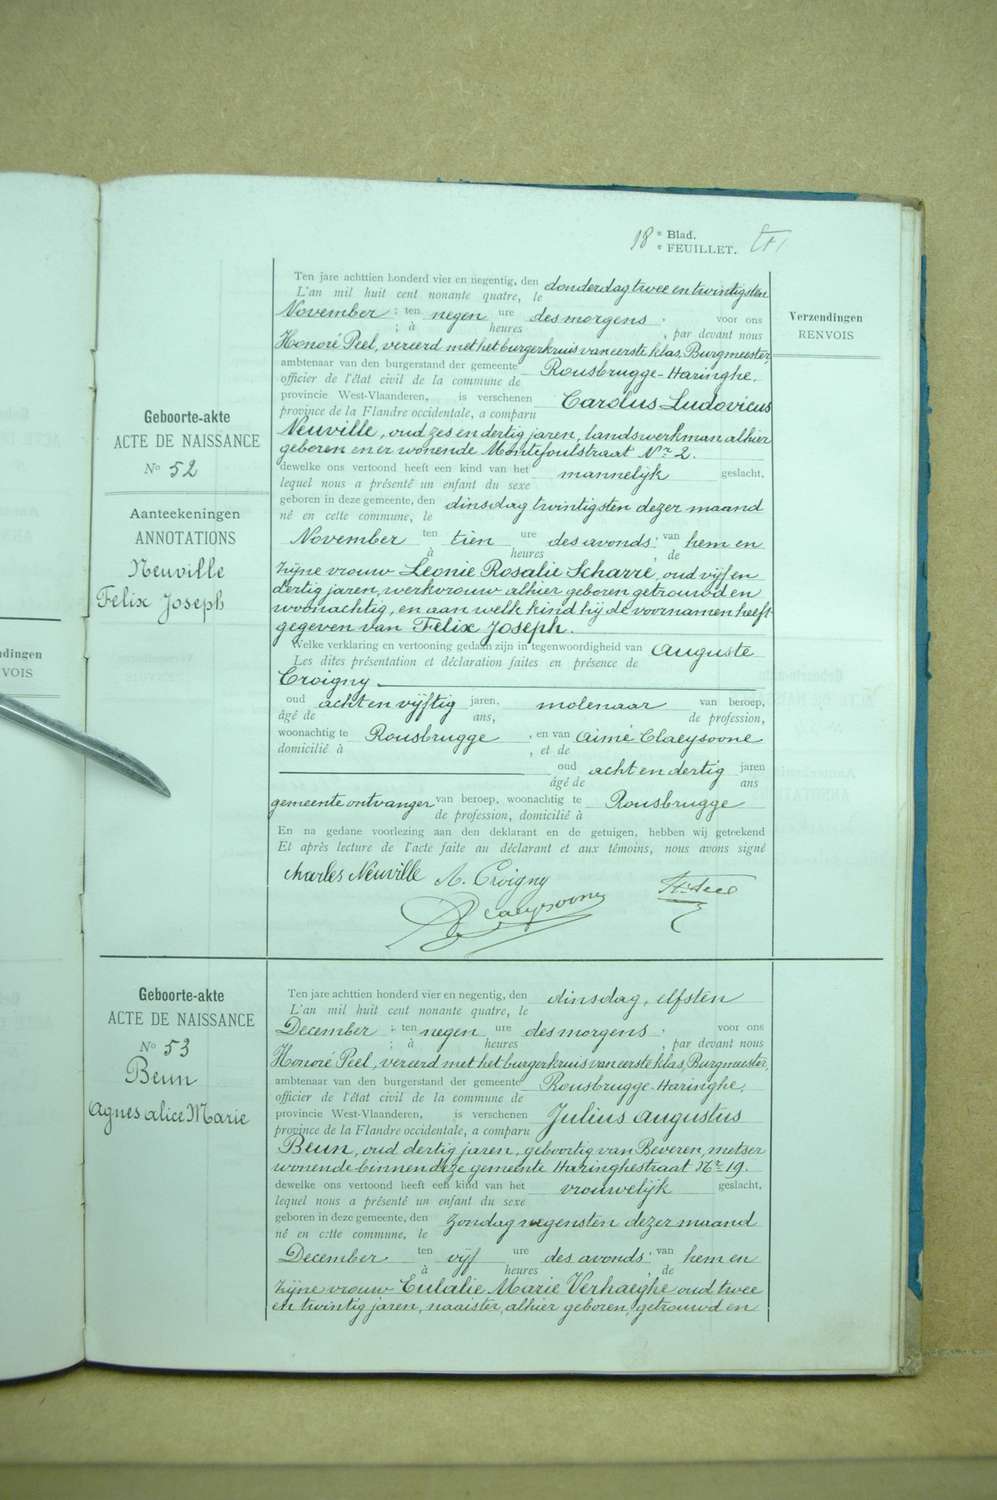 18 e Blad.
e FEUILLET.
Verzendingen
RENVOIS
Geboorte-akte
ACTE DE NAISSANCE
No 52
Aanteekeningen
ANNOTATIONS
Neuville
Felix Joseph
Ten jare achttien honderd vier en negentig, den donderdag twee en twintigsten
L'an mil huit cent nonante quatre, le
November ; ten negen ure des morgens ; voor ons
; à heures , par devant nous
Honoré Peel, vereerd met het burgerkruis van eerste klas, Burgmeester,
ambtenaar van den burgerstand der gemeente Rousbrugge-Haringhe,
officier de l'état civil de la commune de
provincie West-Vlaanderen, is verschenen Carolus Ludovicus
province de la Flandre occidentale, a comparu
Neuville, oud zes en dertig jaren, landswerkman alhier
geboren en er wonende Montefoulstraat Nr 2.
dewelke ons vertoond heeft een kind van het mannelijk geslacht,
lequel nous a présenté un enfant du sexe
geboren in deze gemeente, den dinsdag twintigsten dezer maand
né en cette commune, le
November ten tien ure des avonds ; van hem en
à heures , de
zijne vrouw Leonie Rosalie Scharre, oud vijf en
dertig jaren, werkvrouw alhier geboren getrouwd en
woonachtig, en aan welk kind hij de voornamen heeft
gegeven van Felix Joseph.
Welke verklaring en vertooning gedaan zijn in tegenwoordigheid van Auguste
Les dites présentation et déclaration faites en présence de
Croigny
oud acht en vijftig jaren, molenaar van beroep,
âgé de ans, de profession,
woonachtig te Rousbrugge , en van Aimé Claeysoone
domicilié à , et de
oud acht en dertig jaren
âgé de ans
gemeente ontvanger van beroep, woonachtig te Rousbrugge
de profession, domicilié à
En na gedane voorlezing aan den deklarant en de getuigen, hebben wij geteekend
Et après lecture de l'acte faite au déclarant et aux témoins, nous avons signé
Charles Neuville A. Croigny
Claeysoone
H. Peel
Geboorte-akte
ACTE DE NAISSANCE
No 53
Beun
Agnes Alice Marie
Ten jare achttien honderd vier en negentig, den dinsdag, elfsten
L'an mil huit cent nonante quatre, le
December ; ten negen ure des morgens ; voor ons
; à heures , par devant nous
Honoré Peel, vereerd met het burgerkruis van eerste klas, Burgmeester,
ambtenaar van den burgerstand der gemeente Rousbrugge-Haringhe,
officier de l'état civil de la commune de
provincie West-Vlaanderen, is verschenen Julius Augustus
province de la Flandre occidentale, a comparu
Beun, oud dertig jaren, geboortig van Beveren, metser
wonende binnen deze gemeente Haringhestraat Nr 19.
dewelke ons vertoond heeft een kind van het vrouwelijk geslacht,
lequel nous a présenté un enfant du sexe
geboren in deze gemeente, den Zondag negensten dezer maand
né en cette commune, le
December ten vijf ure des avonds ; van hem en
à heures , de
zijne vrouw Eulalie Marie Verhaeghe oud twee
en twintig jaren, naaister, alhier geboren, getrouwd en